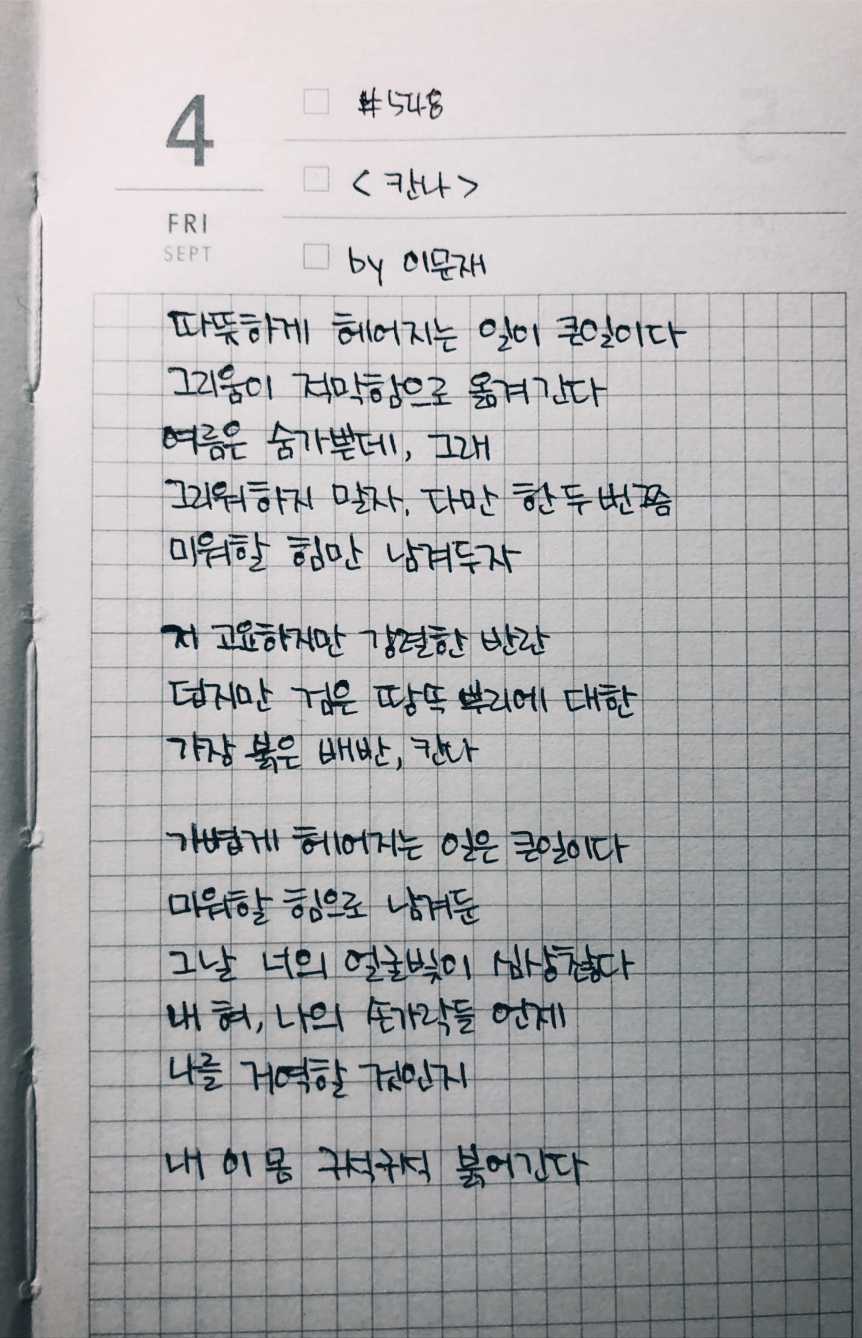 4
FRI
SEPT
#548
<칸나>
by 이문재
따뜻하게 헤어지는 일이 큰일이다
그리움이 적막함으로 옮겨간다
여름은 숨가쁜데, 그래
그리워하지 말자, 다만 한두번쯤
미워할 힘만 남겨두자
저 고요하지만 강렬한 반란
덥지만 검은 땅속 뿌리에 대한
가장 붉은 배반, 칸나
가볍게 헤어지는 일은 큰일이다
미워할 힘으로 남겨둔
그날 너의 얼굴빛이 심상찮다
내 혀, 나의 손가락들 언제
나를 거역할 것인지
내 이 몸 구석구석 붉어간다